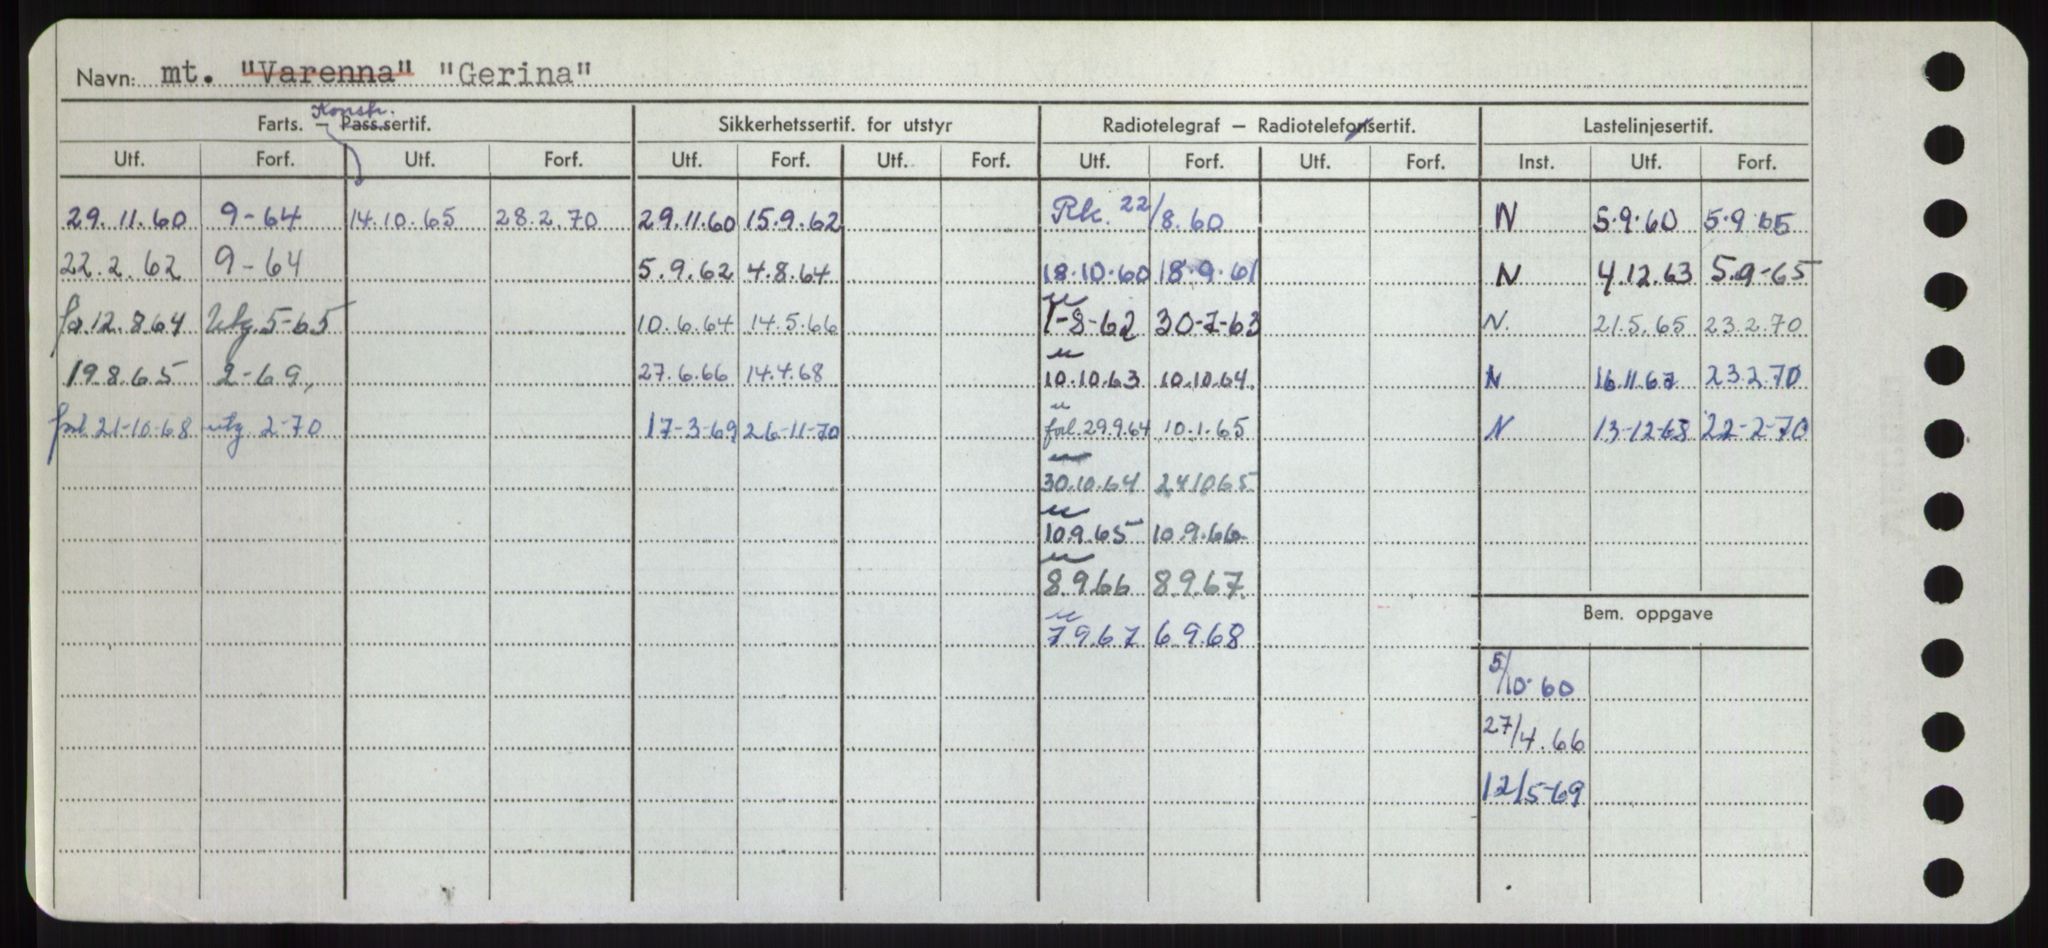 Navn: mt. "Varenna" "Gerina"
Konstr.
Farts. – Pass.sertif. Sikkerhetssertif. for utstyr Radiotelegraf – Radiotelefonsertif. Lastelinjesertif.
Utf. Forf. Utf. Forf. Utf. Forf. Utf. Forf. Utf. Forf. Utf. Forf. Inst. Utf. Forf.
29.11.60 9-64 14.10.65 28.2.70 29.11.60 15.9.62 Rk. 22/8.60 N 5.9.60 5.9.65
22.2.62 9-64 5.9.62 4.8.64 18.10.60 18.9.61 N 4.12.63 5.9-65
12.8.64 utg. 5-65 10.6.64 14.5.66 1-8-62 30-7-63 N. 21.5.65 23.2.70
19.8.65 2-69, 27.6.66 14.4.68 10.10.63 10.10.64. N 16.11.67 23.2.70
forl 21-10-68 utg. 2-70 17-3-69 26-11-70 forl. 29.9.64 10.1.65 N 13-12-68 22-2-70
30.10.64 24.10.65
10.9.65 10.9.66
8.9.66 8.9.67.
Bem. oppgave
7.9.67 6.9.68
5/10-60
27/4.66
12/5-69